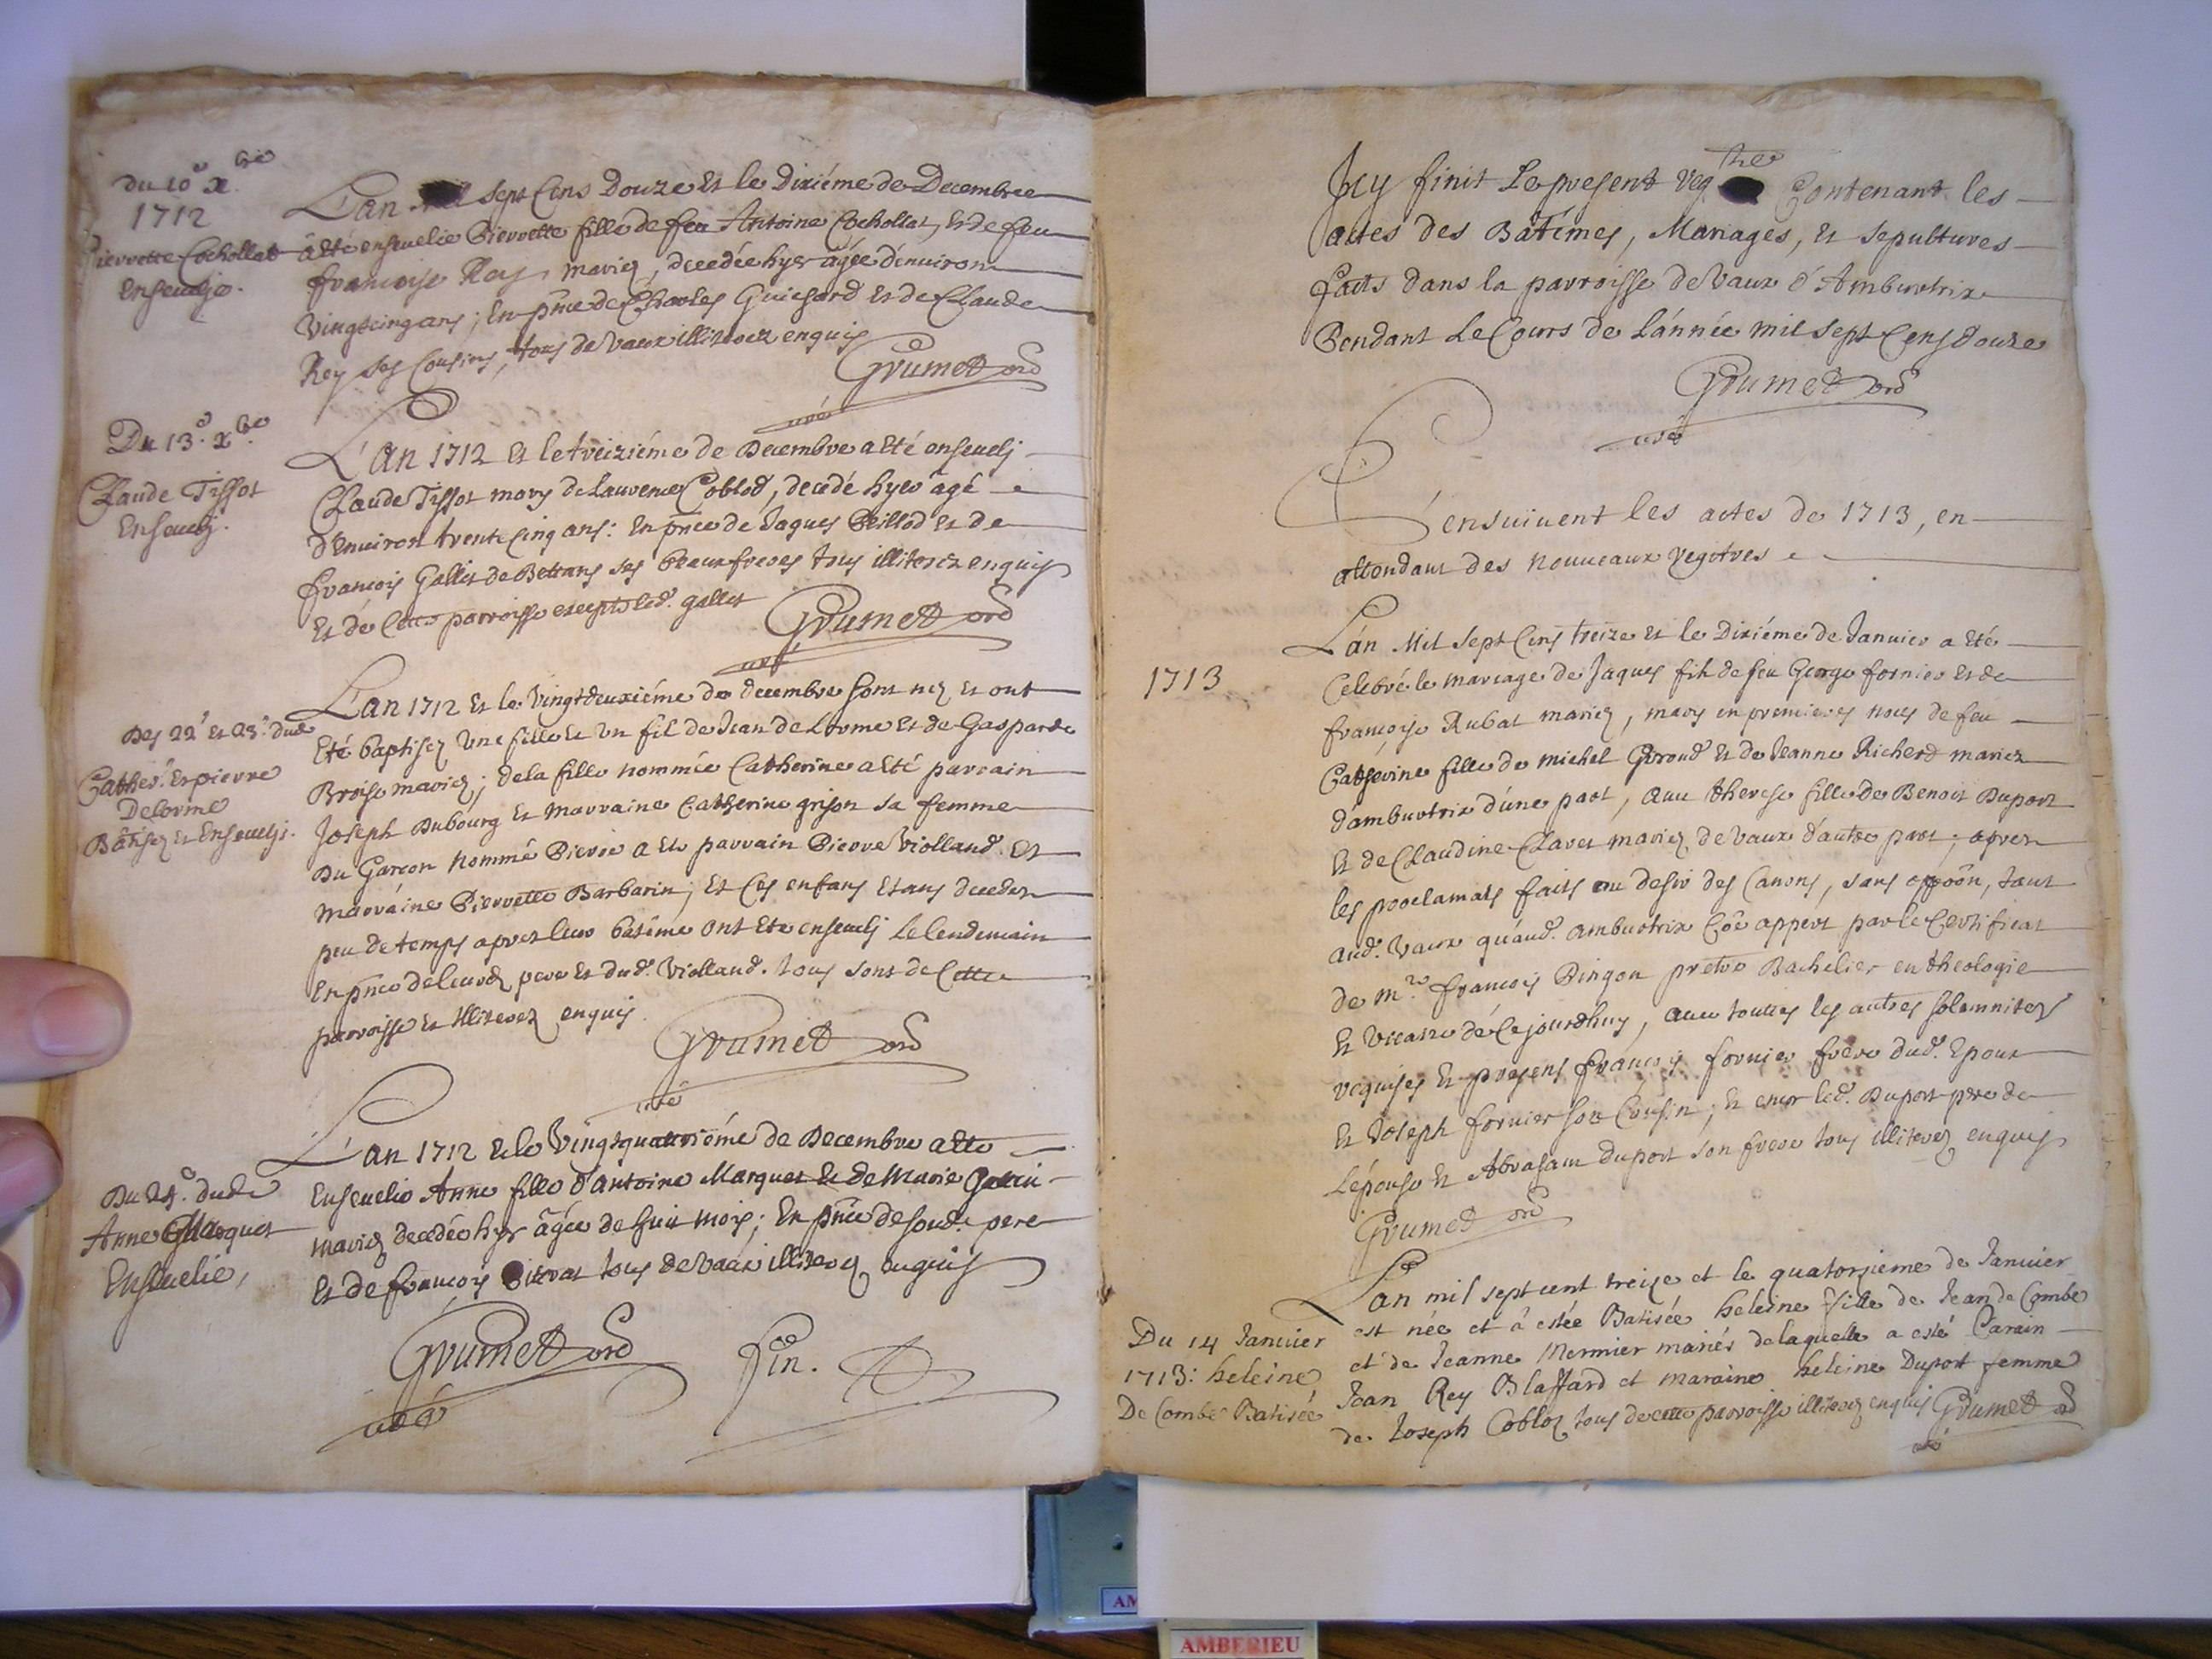 du 10e xbre
1712
Pierrette Cochollat
Ensevelie.
L'an mil sept Cens Douze Et le Dixiéme de Decembre
à Eté ensevelie Pierrette fille de feu Antoine Cochollat, Et de feu
françoise Rey mariez, decedée hyer âgée d'environ
vingtcinq ans; En pnce de Charles Guichard Et de Claude
Rey ses Cousins, tous de Vaux illiterez enquis
Grumet curé
Du 13e. xbre
Claude Tissot
Ensevelj.
L'An 1712 Et le treiziéme de Decembre a Eté ensevelj
Claude Tissot mary de Laurence Coblod, decedé hyer âgé
d'Environ trente cinq ans: En pnce de Jaques Peillod Et de
françois Gallet de Bettans ses beaux freres tous illiterez enquis
Et de Cette parroisse excepté led. gallet
Grumet curé
Des 22e Et 23e. dud.
Cather. Et pierre
Delorme
Bâtisez Et Enseveljs.
L'an 1712 Et le Vingtdeuxiéme de decembre sont nez Et ont
Eté baptisez Une fille Et Un fil de Jean de Lorme Et de Gasparde
Broise mariez; de la fille nommée Catherine a Eté parrain
Joseph Dubourg Et marraine Catherine grison sa femme
Du Garcon nommé Pierre a Eté parrain Pierre Violland. Et
marraine Pierrette Barbarin; Et Ces enfans Etans decedez
peu de temps apres leur bâtême ont Eté ensevelj le lendemain
En pnce de leurd. pere Et dud. Violland. tous sont de Cette
parroisse Et illiterez enquis.
Grumet curé
Du 24e. dud.
Anne Marquet
Ensevelie,
L'an 1712 Et le Vingtquatriéme de Decembre a Eté
Ensevelie Anne fille d'Antoine Marquet Et de Marie
mariez decedée hyer âgée de huit mois; En pnce de sond. pere
Et de françois tous de Vaux illiterez enquis
Grumet curé
Fin.
Jcy finit Le present regtre Contenant les
actes des Batêmes, Mariages, Et sepultures
faits dans la parroisse de Vaux d'Ambutrix
Pendant Le Cours de L'année mil sept Cens douze
Grumet curé
S'ensuivent les actes de 1713, en
attendant des nouveaux regitres
1713
L'an Mil sept Cens treize Et le Dixiéme de Januier a Eté
Celebré le mariage de Jaques fils de feu George fornier Et de
françoise Rubat mariez, mary en premieres noces de feu
Catherine fille de michel Giroud Et de Jeanne Richerd mariez
d'ambutrix d'une part, avec therese fille de Benoit Duport
Et de Claudine Claret mariez de Vaux d'autre part; apres
les proclamats faits au desir des Canons, sans oppoôn, tant
aud. Vaux qu'aud. ambutrix Côe appert par le Certificat
de Mre. françois Pingon pretre Bachelier en theologie
Et vicaire de Cejourdhuy, avec toutes les autres solemnitez
requises Et presens françois fornier frere dud. Epoux
Et Joseph fornier son Cousin; Et encor led. Duport pere de
L'épouse Et Abraham duport son frere tous illiterez enquis
Grumet curé
Du 14 Januier
1713: heleine
De Combe Batisée
L'an mil sept cent treize et le quatorzieme de Januier
est née et à estée Batisée heleine fille de Jean de Combe
et de Jeanne Mermier mariés delaquelle a esté Parain
Jean Rey Blaffard et maraine heleine Duport femme
de Joseph Cobloz tous de cette parroisse illiterez enquis Grumet curé
AM
AMBERIEU